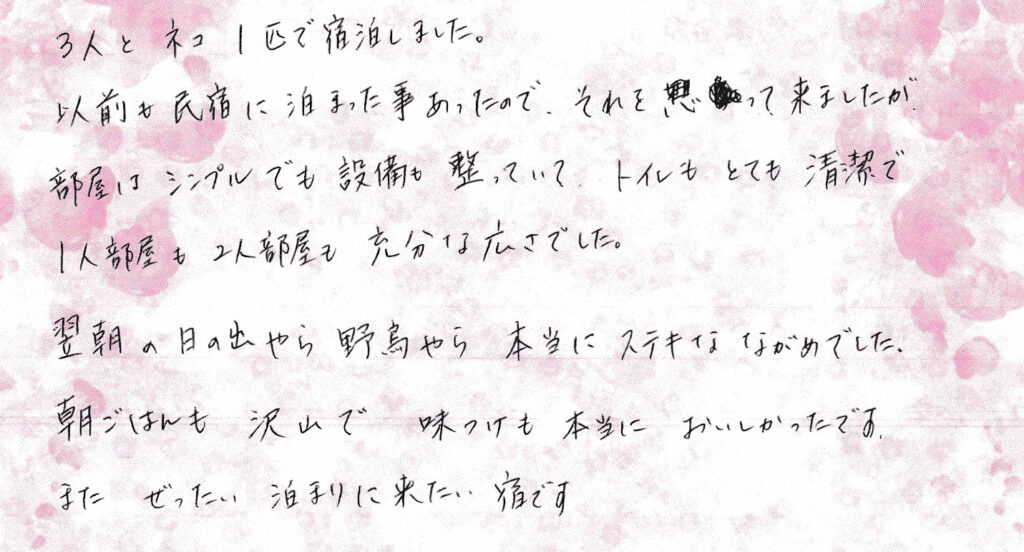 3人と ネコ 1匹で宿泊しました。
以前も民宿に泊まった事あったので、それを思って来ましたが、
部屋は シンプルでも設備も整っていて、トイレもとても清潔で
1人部屋も 2人部屋も 充分な広さでした。
翌朝の日の出やら野鳥やら 本当に ステキな ながめでした。
朝ごはんも 沢山で 味つけも 本当に おいしかったです。
また ぜったい 泊まりに来たい 宿です